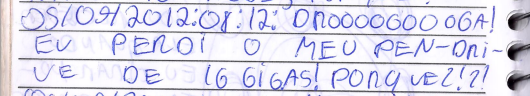 05/09/2012:08:12: DROOOOGOOOGA!
EU PERDI O MEU PEN-DRI-
VE DE 16 GIGAS! PORQUE?!?!